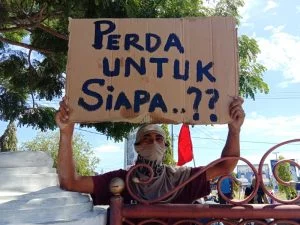 PERDA
UNTUK
SIAPA..??